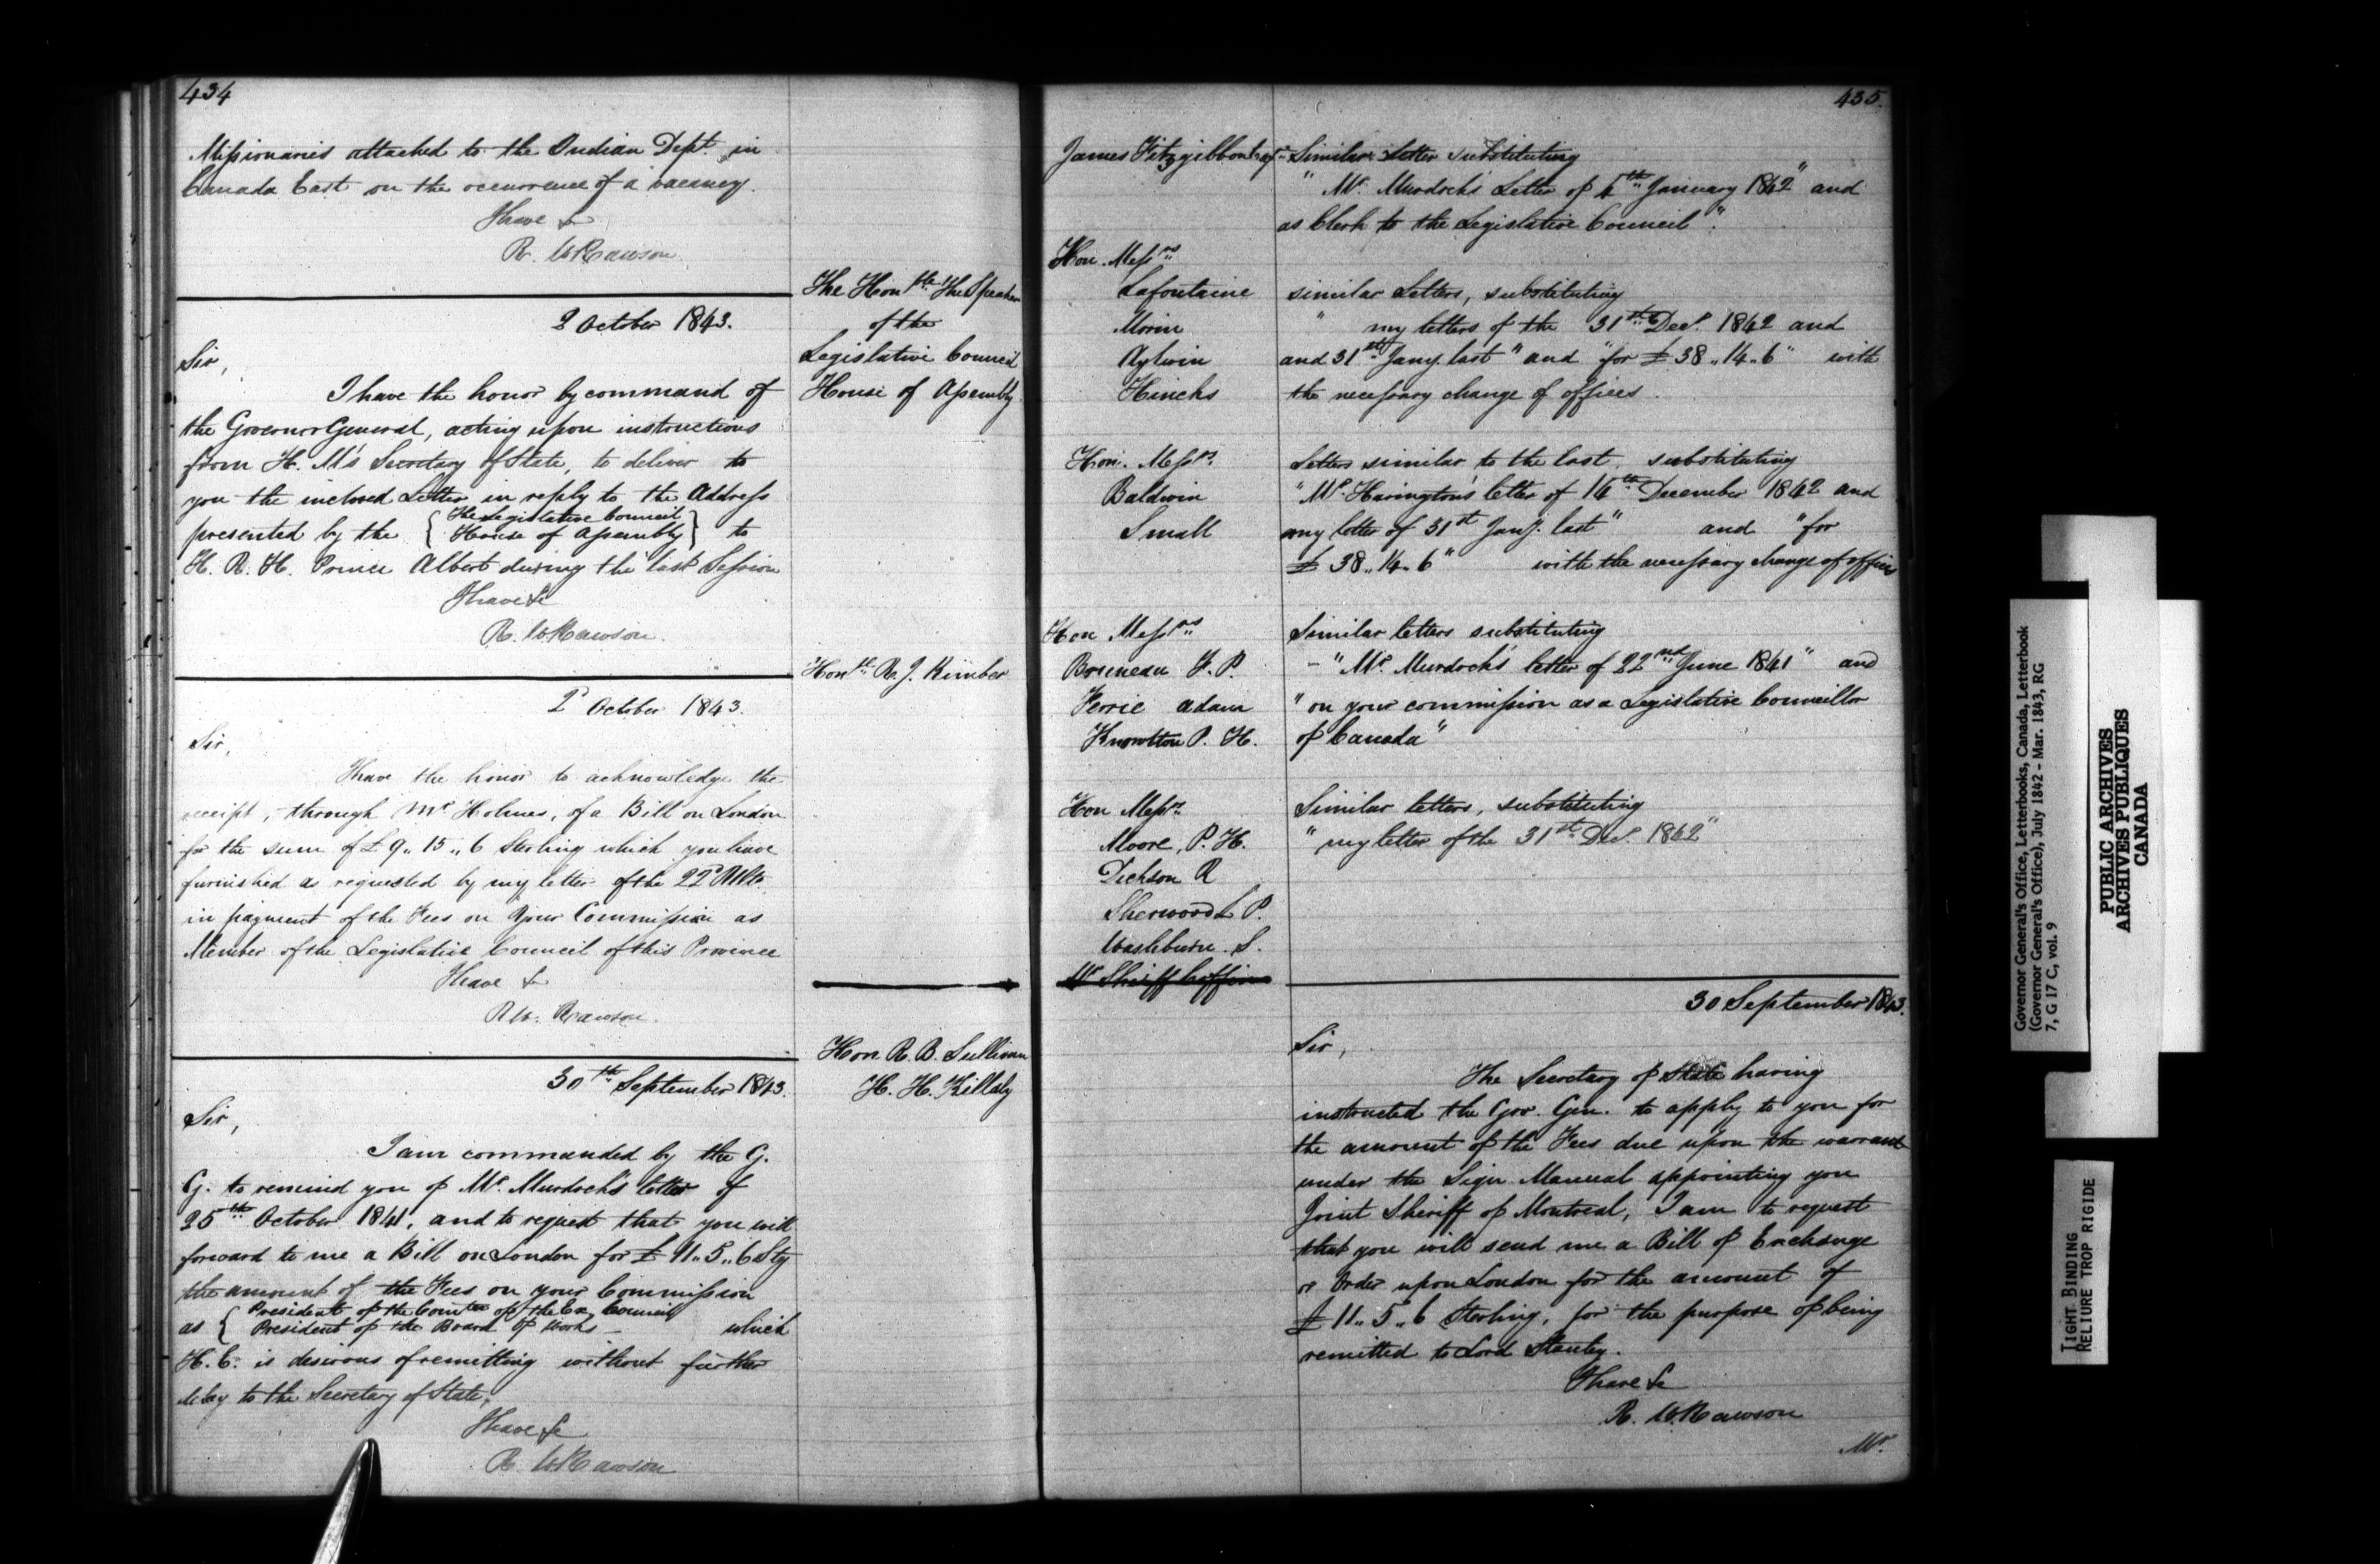 434
Missionaries attached to the Indian Dept. in
Canada East on the occurrence of a vacancy.
I have &c
R. W Rawson
The Honble The Speaker
of the
Legislative Council
House of Assembly
2 October 1843.
Sir,
I have the honor by command of
the Governor General, acting upon instructions
from H. M's Secretary of State, to deliver to
you the inclosed Letter in reply to the Address
presented by the { The Legislative Council
House of Assembly } to
H. R. H. Prince Albert during the last Session
I have &c
R. W Rawson.
Honble R. J. Kimber
2 October 1843.
Sir,
I have the honor to acknowledge the
receipt, through Mr Holmes, of a Bill on London
for the sum of £ 9.. 15.. 6 Sterling which you have
furnished as requested by my letter of the 22d Ulto.
in payment of the Fees on Your Commission as
Member of the Legislative Council of this Province
I have &c
R W. Rawson.
Hon R. B. Sullivan
H. H. Killaly
30th September 1843.
Sir,
I am commanded by the G.
G. to remind you of Mr. Murdoch's letter of
25th October 1841, and to request that you will
forward to me a Bill on London for £ 11.. 5.. 6 Stg
the amount of the Fees on your Commission
as { President of the Comtee of the Ex. Council
President of the Board of Works which
H. E. is desirous of remitting without further
delay to the Secretary of State,
I have &c
R. W Rawson
435.
James Fitzgibbon Esqr Similar Letter substituting
" Mr. Murdoch's Letter of 4th January 1842" and
as Clerk to the Legislative Council".
Hon. Messrs
Lafontaine similar Letters, substituting
Morin " my letters of the 31st Decr. 1842 and
Aylwin and 31st Jany. last" and "for £ 38.. 14.. 6" with
Hincks the necessary change of offices.
Hon. Messrs. Letters similar to the last, substituting
Baldwin "Mr. Harington's letter of 14th December 1842 and
Small my letter of 31st Jany. last" and "for
£ 38.. 14.. 6" with the necessary change of offices
Hon Messrs Similar letters substituting
Bruneau F. P. - "Mr. Murdoch's letter of 22nd June 1841" and
Ferrie Adam "on your commission as a Legislative Councillor
Knowlton P. H. of Canada"
Hon Messrs. Similar letters, substituting
Moore, P. H. "my letter of the 31st Decr. 1842"
Dickson R
Sherwood L P.
Washburn. S.
Mr Sheriff Coffin
30 September 1843.
Sir,
The Secretary of State having
instructed the Gov. Gen. to apply to you for
the amount of the Fees due upon the warrant
under the Sign Manual appointing you
Joint Sheriff of Montreal, I am to request
that you will send me a Bill of Exchange
or Order upon London for the amount of
£ 11.. 5.. 6 Sterling, for the purpose of being
remitted to Lord Stanley.
I have &c
R. W. Rawson
Mr.
Governor General's Office, Letterbooks, Canada, Letterbook
(Governor General's Office), July 1842 - Mar. 1843, RG
7, G 17 C, vol. 9
PUBLIC ARCHIVES
ARCHIVES PUBLIQUES
CANADA
TIGHT BINDING
RELIURE TROP RIGIDE